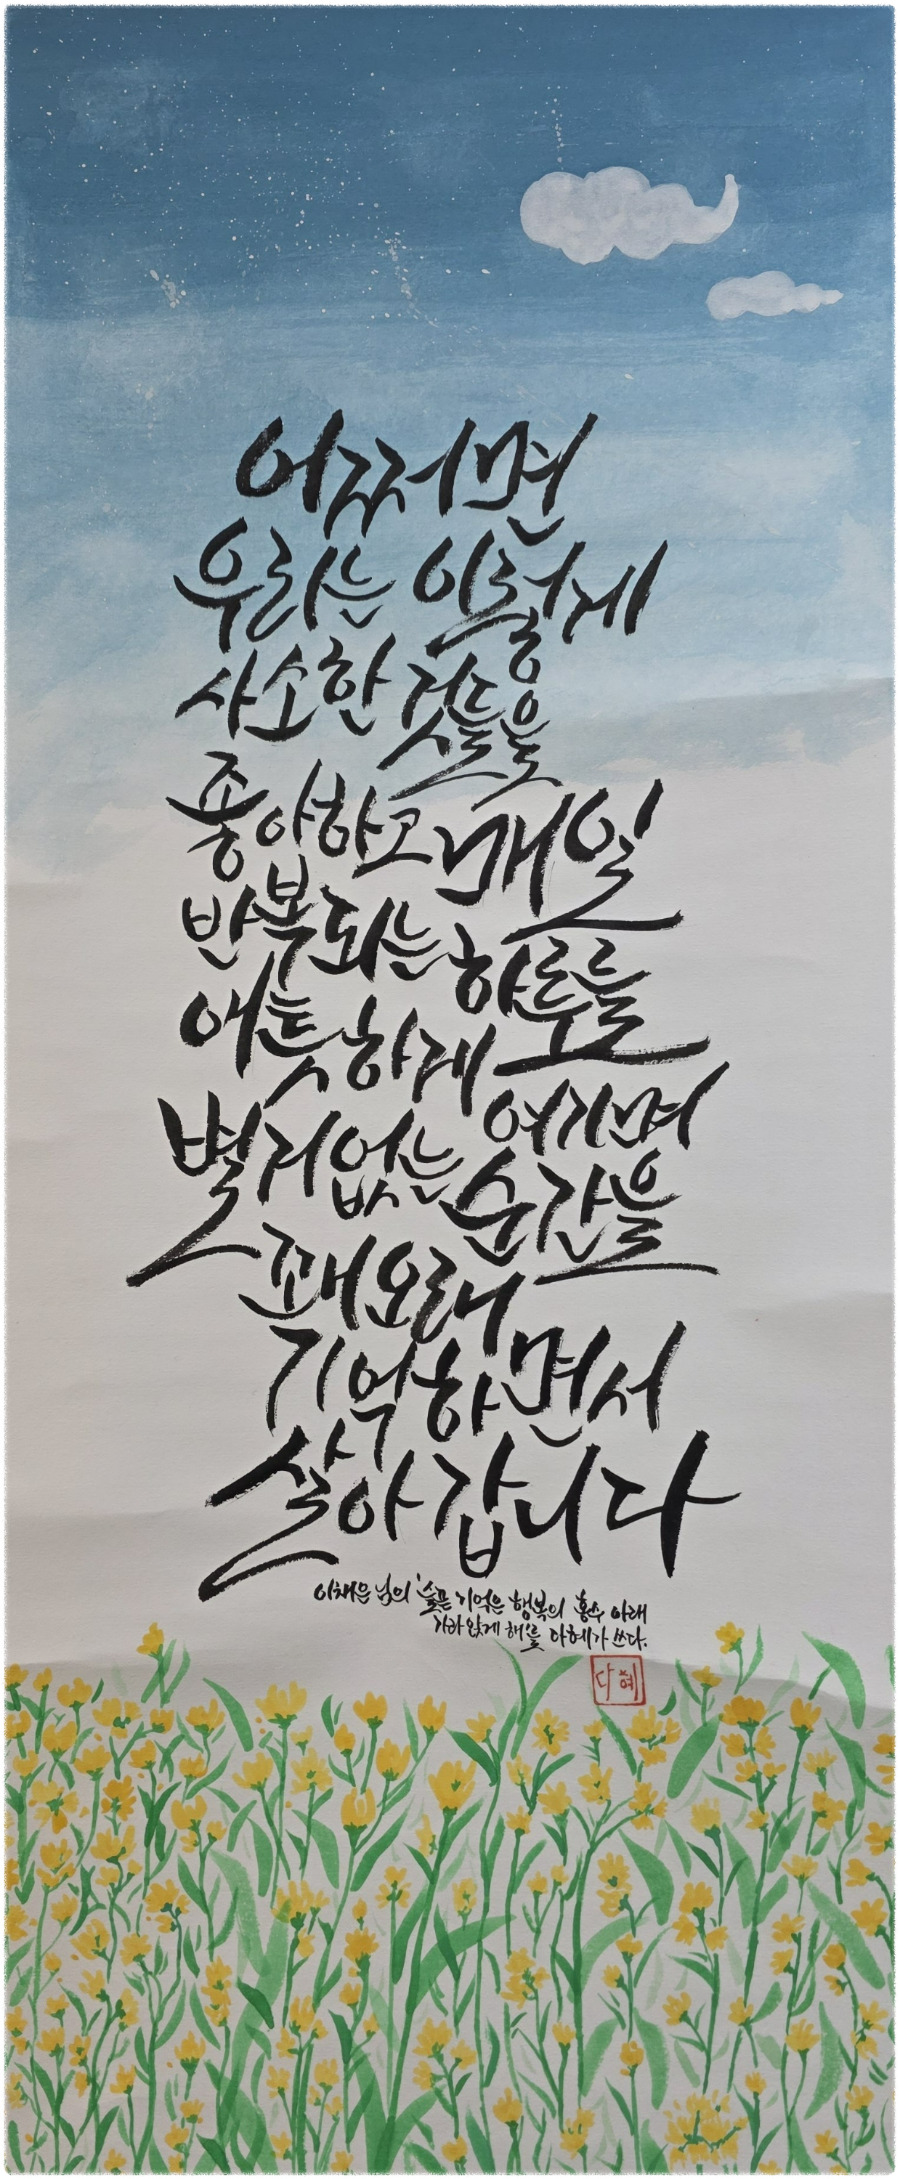 어쩌면
우리는 이렇게
사소한 것들을
좋아하고 매일
반복되는 하루를
애틋하게 여기며
별거없는 순간을
꽤 오래
기억하면서
살아갑니다
이채은 님의 '슬픈 기억은 행복의 홍수 아래
가라앉게 해'를 다혜가 쓰다.
다혜